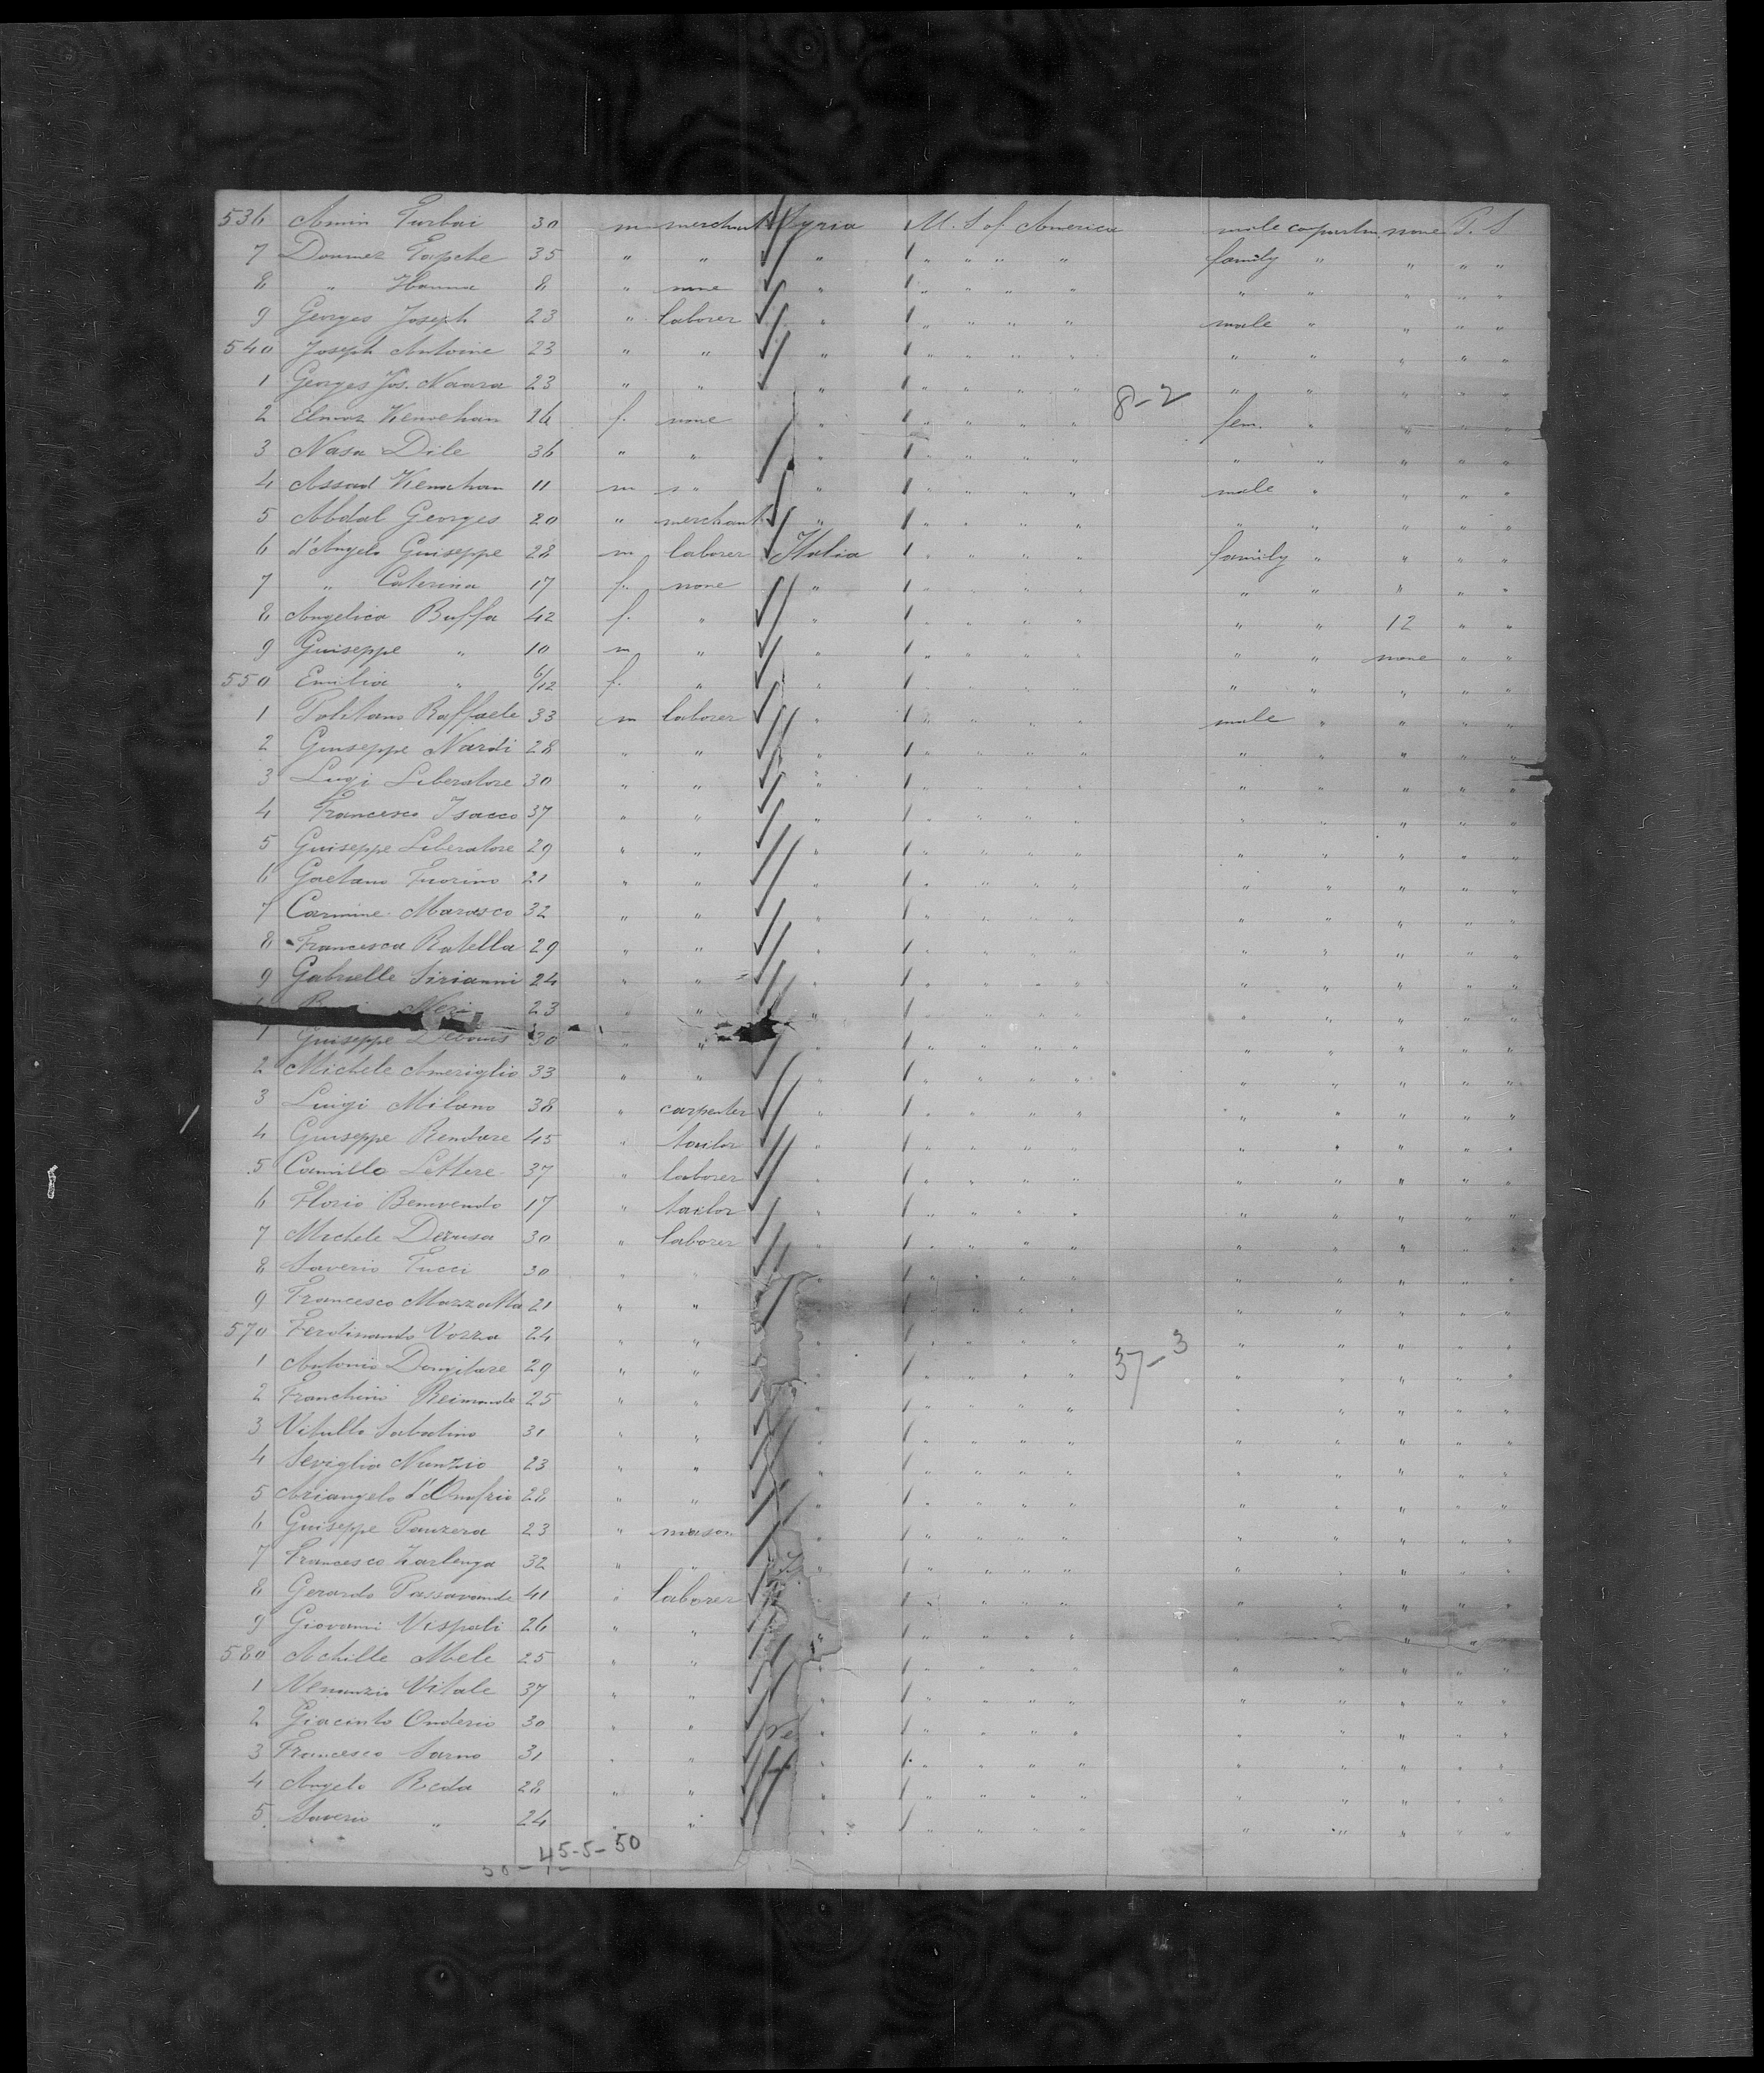 536 Amin Turbai 30 m merchant Syria U. S. of America male compartm. none P. S
7 Doumez Tapche 35 " " " " " " " family " " " "
8 " Hanna 8 " none " " " " " " " " " "
9 Georges Joseph 23 " laborer " " " " " male " " " "
540 Joseph Antoine 23 " " " " " " " " " " " "
1 Georges Jos. Naara 23 " " " " " " " " " " " "
8-2
2 Elmaz Kenehan 26 f. none " " " " " fem. " " " "
3 Nasa Dile 36 " " " " " " " " " " " "
4 Assad Kenahan 11 m " " " " " " male " " " "
5 Abdal Georges 20 " merchant " " " " " " " " " "
6 d'Angelo Guiseppe 28 m laborer Italia " " " " family " " " "
7 " Caterina 17 f. none " " " " " " " " " "
8 Angelica Buffa 42 f. " " " " " " " " 12 " "
9 Guiseppe " 10 m " " " " " " " " none " "
550 Emilia " 6/12 f. " " " " " " " " " " "
1 Politano Raffaele 33 m laborer " " " " " male " " " "
2 Giuseppe Nardi 28 " " " " " " " " " " " "
3 Luigi Liberatore 30 " " " " " " " " " " " "
4 Francesco Isacco 37 " " " " " " " " " " " "
5 Guiseppe Liberatore 29 " " " " " " " " " " " "
6 Gaetano Fuorino 21 " " " " " " " " " " " "
7 Carmine Marasco 32 " " " " " " " " " " " "
8 Francesca Ratella 29 " " " " " " " " " " " "
9 Gabrielle Sirianni 24 " " " " " " " " " " " "
Neri 23 " " " " " " " " " " " "
1 Guiseppe Debonis 30 " " " " " " " " " " " "
2 Michele Ameriglio 33 " " " " " " " " " " " "
3 Luigi Milano 38 " carpenter " " " " " " " " " "
4 Guiseppe Rendare 45 " tailor " " " " " " " " " "
5 Camillo Lettere 37 " laborer " " " " " " " " " "
6 Florio Benvendo 17 " tailor " " " " " " " " " "
7 Michele Derusa 30 " laborer " " " " " " " " " "
8 Saverio Tucci 30 " " " " " " " " " " " "
9 Francesco Mazzotta 21 " " " " " " " " " " " "
570 Ferdinando Vozza 24 " " " " " " " " " " " "
1 Antonio Dongitare 29 " " " " " " " " " " " "
37-3
2 Franchini Reimonde 25 " " " " " " " " " " " "
3 Vitullo Sabatino 31 " " " " " " " " " " " "
4 Seviglia Nunzio 23 " " " " " " " " " " " "
5 Ariangelo d'Onofrio 28 " " " " " " " " " " " "
6 Guiseppe Panzera 23 " mason " " " " " " " " " "
7 Francesco Zarlenga 32 " " " " " " " " " " " "
8 Gerardo Passavande 41 " laborer " " " " " " " " " "
9 Giovanni Vispoli 26 " " " " " " " " " " " "
580 Achille Mele 25 " " " " " " " " " " " "
1 Venanzio Vitale 37 " " " " " " " " " " " "
2 Giacinto Onderio 30 " " " " " " " " " " " "
3 Francesco Sarno 31 " " " " " " " " " " " "
4 Angelo Reda 28 " " " " " " " " " " " "
5 Saverio " 24 " " " " " " " " " " " "
45-5-50